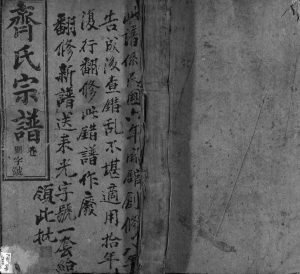 此譜係民國六年開館創修
告成後查錯乱不堪適用拾年
復行翻修此錯譜作廢
翻修新譜送来光字號一套給
領此批
齊氏宗譜
卷
字號